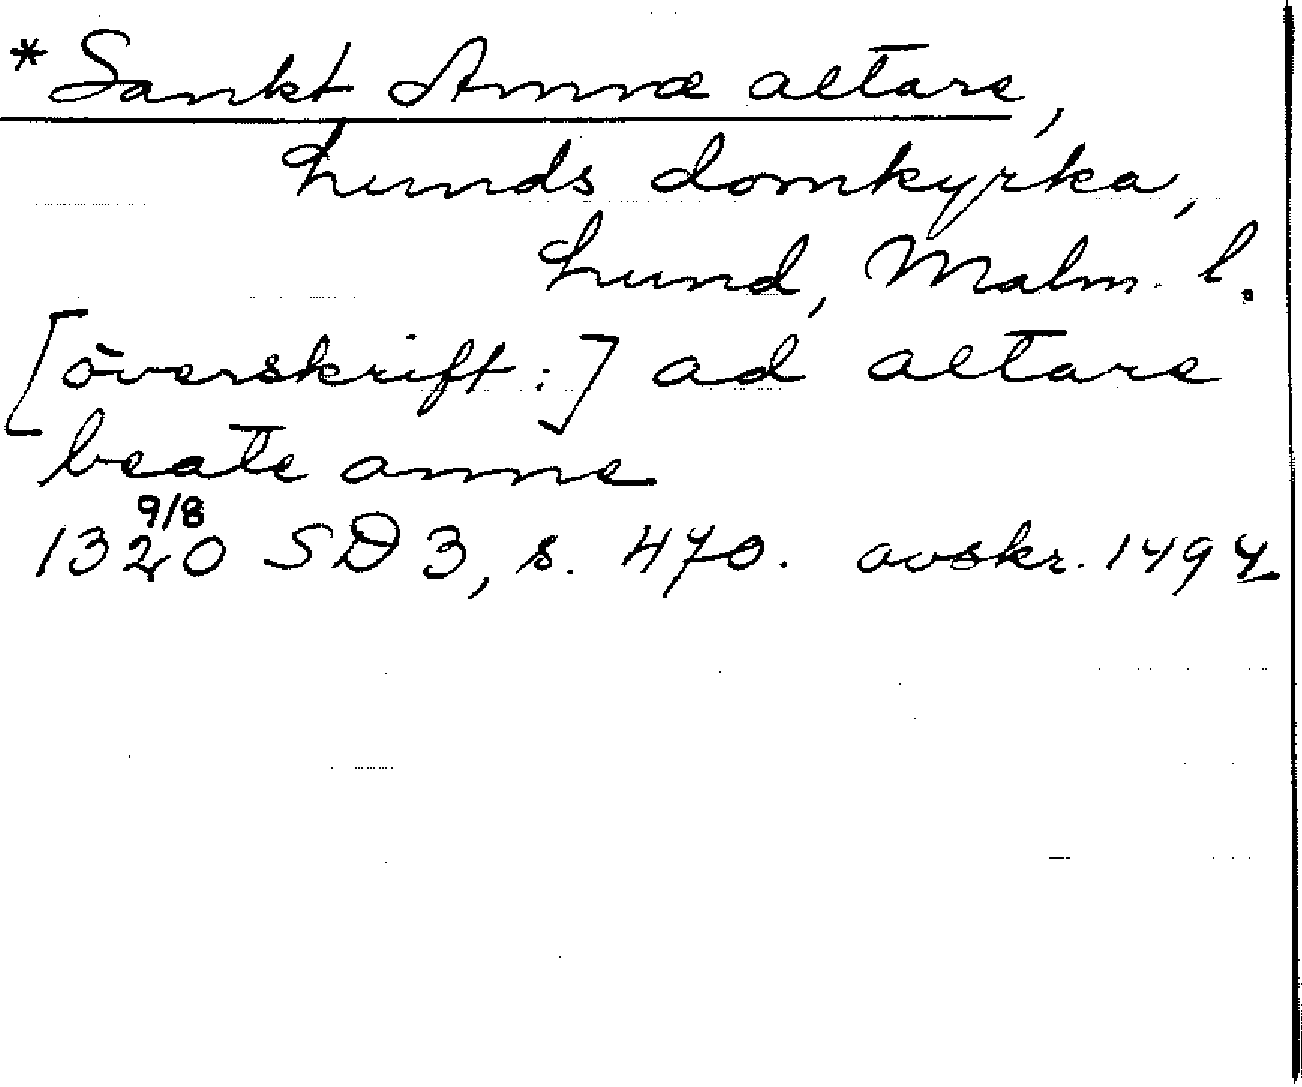 *Sankt Annæ altare,
Lunds domkyrka,
Lund, Malm. l.
[överskrift:] ad altare
beate anne
9/8
1320 SD 3, s. 470. avskr. 1494